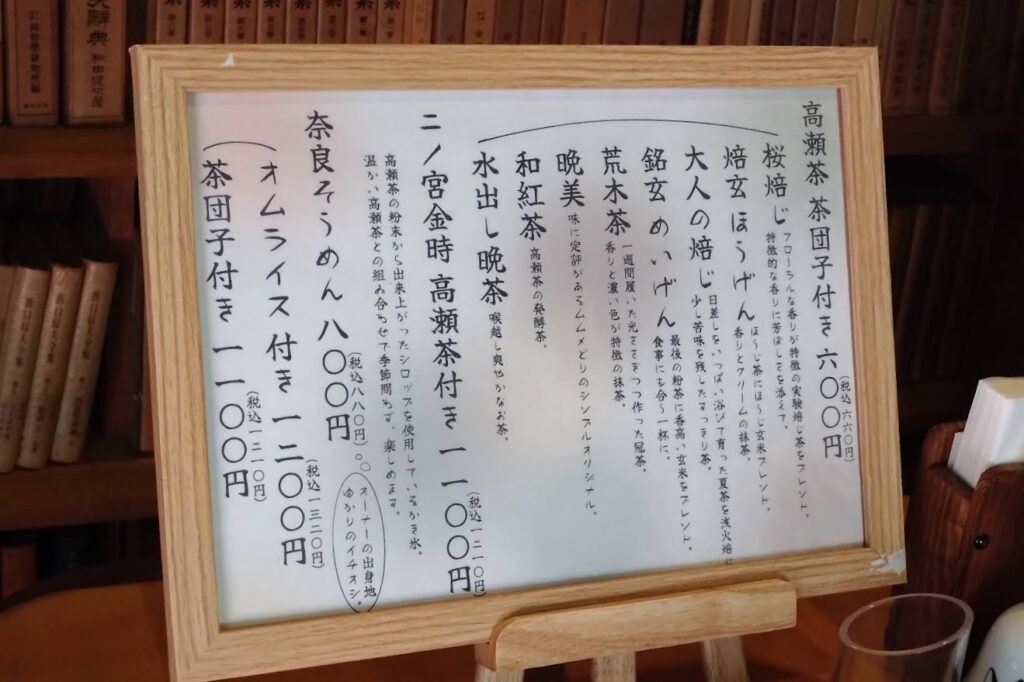 高瀬茶 茶団子付き 六〇〇円
(税込 六六〇円)
桜焙じ
フローラルな香りが特徴の実験焙じ茶をブレンド。
特徴的な香りに芳ばしさを添えて。
焙玄 ほうげん
ほうじ茶にほうじ玄米ブレンド。
香りとクリームの抹茶。
大人の焙じ
日差しをいっぱい浴びて育った夏茶を浅火焙じ
少し苦味を残したすっきり茶。
銘玄 めいげん
最後の粉茶に香高い玄米をブレンド。
食事にも合う一杯に。
荒木茶
一週間履いた光をさまつ作った冠茶。
香りと濃い色が特徴の抹茶。
晩美
味に定評があるムメどりのシンプルオリジナル。
和紅茶
高瀬茶の発酵茶。
水出し晩茶
喉越し爽やかなお茶。
二ノ宮金時 高瀬茶付き 一一〇〇円
(税込一二一〇円)
高瀬茶の粉末から出来上がったシロップを使用しているかき氷。
温かい高瀬茶との組み合わせで季節問わず、楽しめます。
奈良そうめん 八〇〇円
(税込八八〇円)
オーナーの出身地
ゆかりのイチオシ。
オムライス 付き 一二〇〇円
(税込一三二〇円)
茶団子付き 一一〇〇円
(税込一二一〇円)